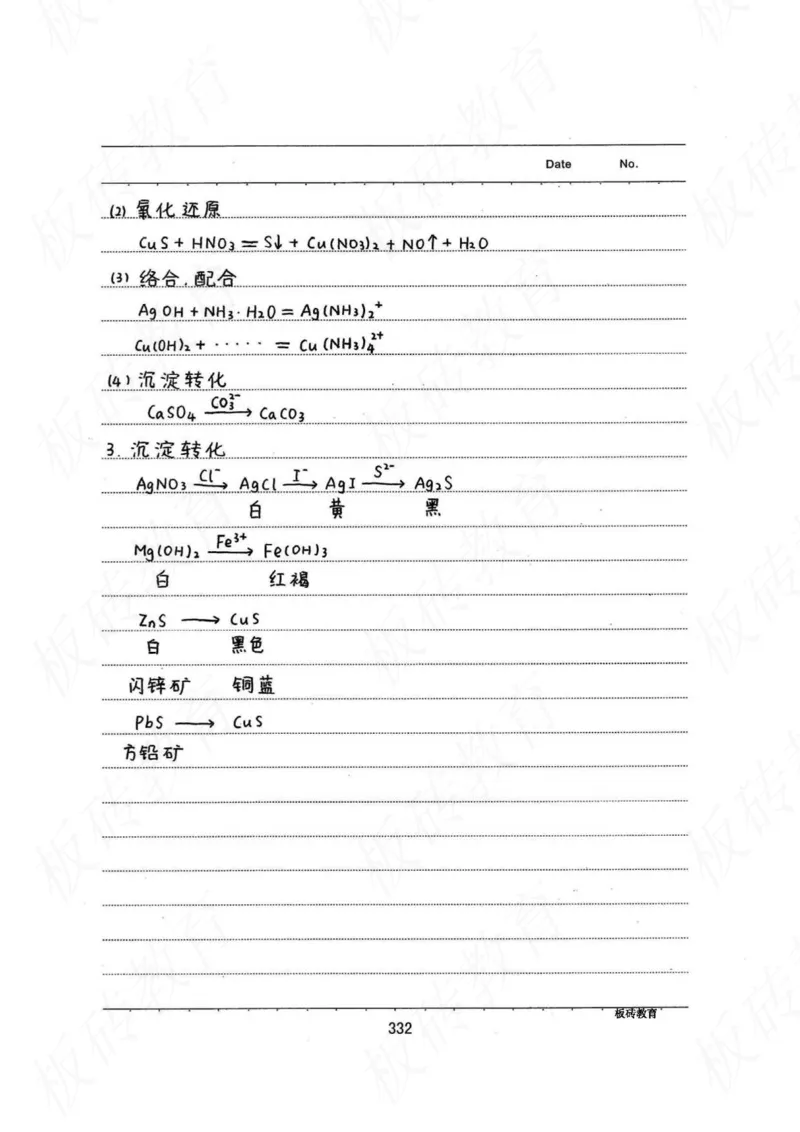 Date No.
(2) 氧化还原
CuS + HNO₃ = S↓ + Cu(NO₃)₂ + NO↑ + H₂O
(3) 络合、配合
AgOH + NH₃·H₂O = Ag(NH₃)₂⁺
Cu(OH)₂ + ····· = Cu(NH₃)₄²⁺
(4) 沉淀转化
CaSO₄ —CO₃²⁻→ CaCO₃
3. 沉淀转化
AgNO₃ —Cl⁻→ AgCl —I⁻→ AgI —S²⁻→ Ag₂S
白 黄 黑
Mg(OH)₂ —Fe³⁺→ Fe(OH)₃
白 红褐
ZnS ⟶ CuS
白 黑色
闪锌矿 铜蓝
PbS ⟶ CuS
方铅矿
板砖教育
332